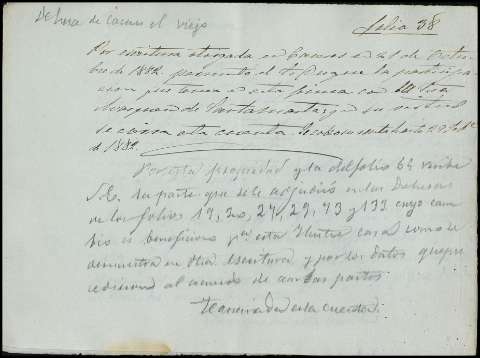 Dehesa de Casas el viejo
folio 38
Por escritura otorgada en Cáceres en 21 de Octu-
bre de 1882. permutó el Sr Duque la participa-
cion que tenia en esta finca con
Marquesa de Santa Marta, y en su virtud
se cierra esta cuenta
de 1882.
Por esta propiedad y la del folio 64 recibe
S. E. la parte que se le adjudicó en las Dehesas
de los folios 19, 20, 27, 29, 93 y 133 cuyo cam
bio es beneficioso pa esta Ilustre casa como se
demuestra en dha. escritura y por los datos que pre
cedieron al acuerdo de ambas partes.
esta cuenta.